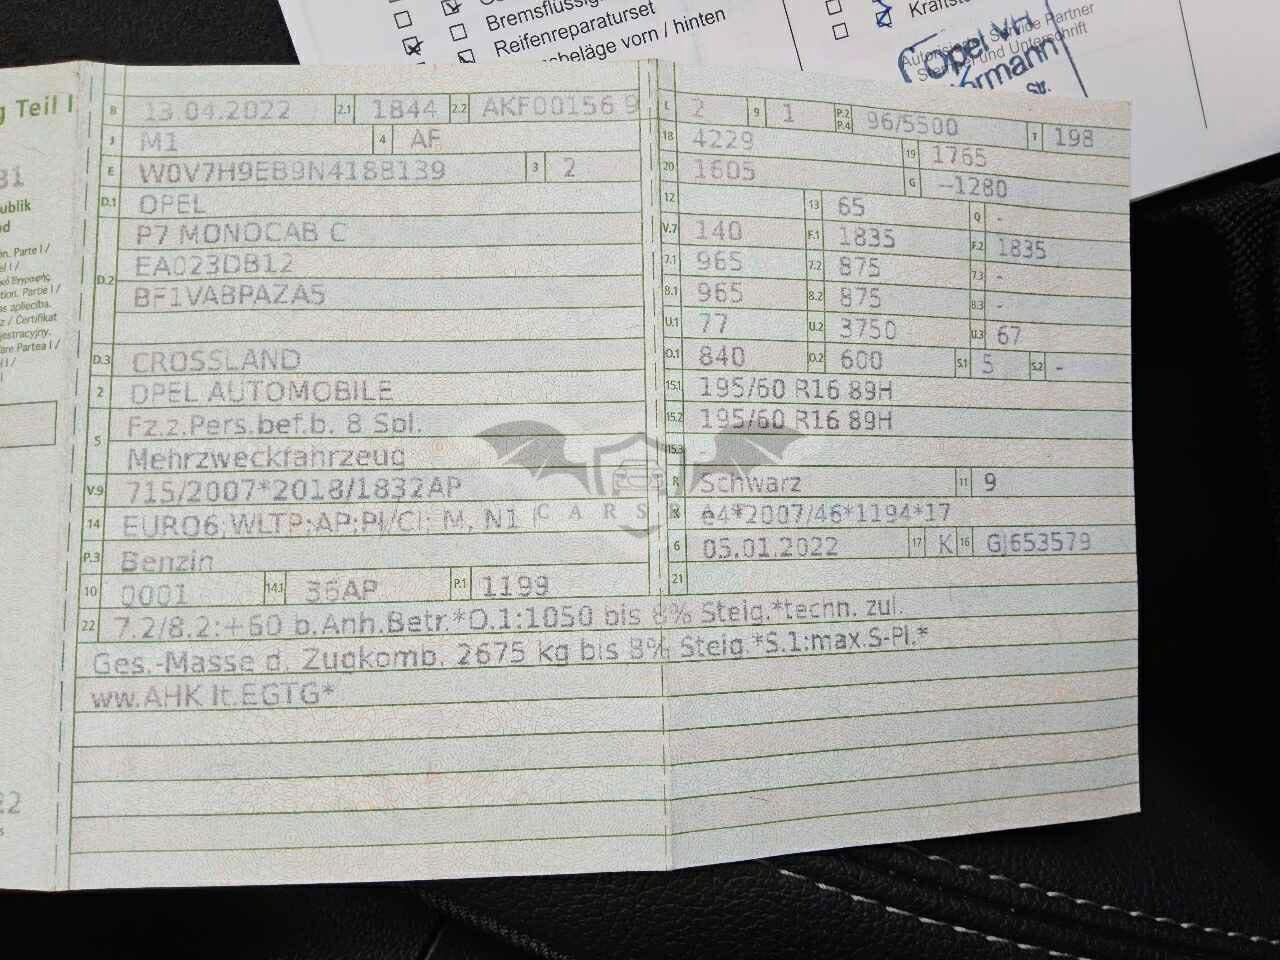 Bremsflüssig
Reifenreparaturset
beläge vorn / hinten
Krafts
Autorisierter Service Partner
Stempel und Unterschrift
Opel
str.
g Teil I
B 13.04.2022 2.1 1844 2.2 AKF00156 9
J M1 4 AF
E W0V7H9EB9N4188139 3 2
D.1 OPEL
D.2 P7 MONOCAB C
EA023DB12
BF1VABPAZA5
D.3 CROSSLAND
2 OPEL AUTOMOBILE
5 Fz.z.Pers.bef.b. 8 Spl.
Mehrzweckfahrzeug
V.9 715/2007*2018/1832AP
14 EURO6;WLTP;AP;PI/CI; M, N1 I
P.3 Benzin
10 0001 14.1 36AP P.1 1199
L 2 9 1 P.2 P.4 96/5500 T 198
18 4229 19 1765
20 1605 G --1280
12 13 65 Q -
V.7 140 F.1 1835 F.2 1835
7.1 965 7.2 875 7.3 -
8.1 965 8.2 875 8.3 -
U.1 77 U.2 3750 U.3 67
O.1 840 O.2 600 S.1 5 S.2 -
15.1 195/60 R16 89H
15.2 195/60 R16 89H
15.3
R Schwarz 11 9
K e4*2007/46*1194*17
6 05.01.2022 17 K 16 GJ653579
21
22 7.2/8.2:+60 b.Anh.Betr.*O.1:1050 bis 8% Steig.*techn. zul.
Ges.-Masse d. Zugkomb. 2675 kg bis 8% Steig.*S.1:max.S-Pl.*
ww.AHK lt.EGTG*
CARS